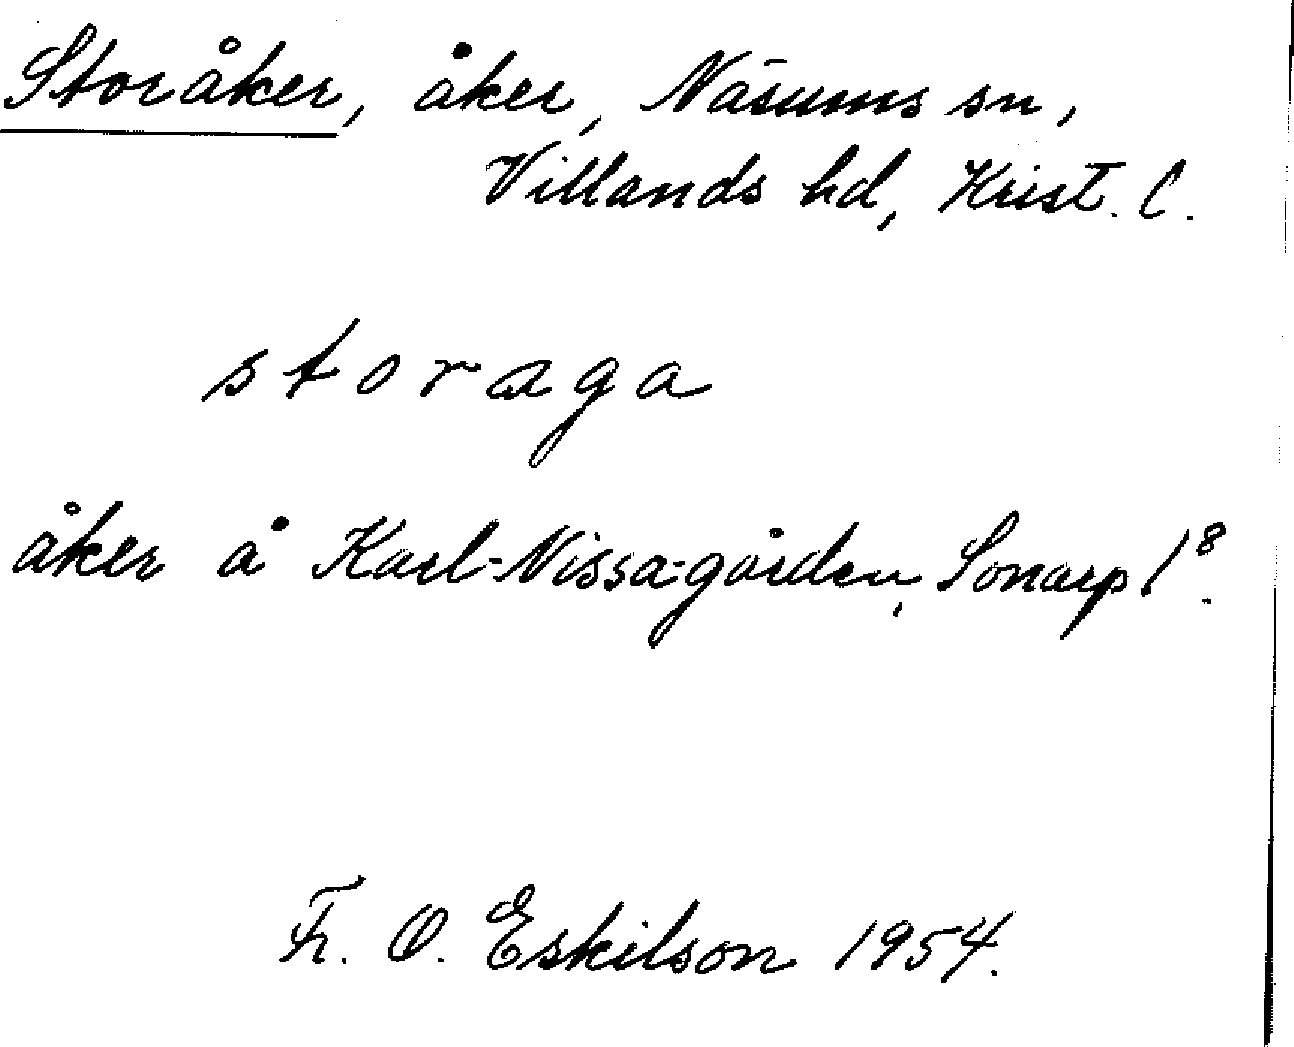 Storåker, åker, Näsums sn,
Villands hd, Krist. l.
storaga
åker å Karl-Nissa-gården, Sonarp 1⁸.
Fr. O. Eskilson 1954.